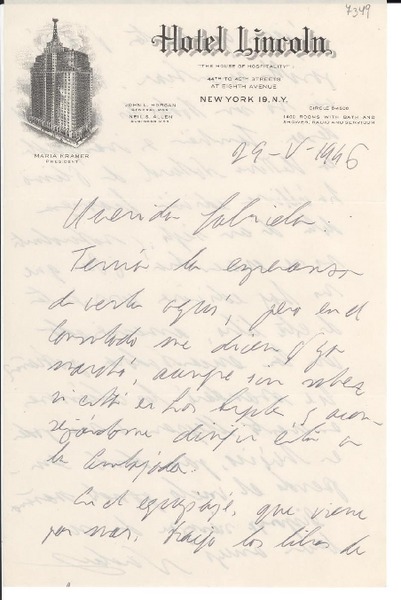 7349
Hotel Lincoln
"THE HOUSE OF HOSPITALITY"
44TH TO 45TH STREETS
AT EIGHTH AVENUE
JOHN L. HORGAN
GENERAL MGR.
NEIL S. ALLEN
BUSINESS MGR.
NEW YORK 18, N.Y.
CIRCLE 6-4500
1400 ROOMS WITH BATH AND
SHOWER, RADIO AND SERVIDOR
MARIA KRAMER
PRESIDENT
29-V-1946
Querida Gabriela:
Tenía la esperanza
de verla aquí, pero en el
Consulado me dicen q ya
marchó, aunque sin saber
si está en Los Angeles y acon-
sejándome dirigir ésta a
la Embajada.
En el equipaje, que viene
por mar, traigo los libros de